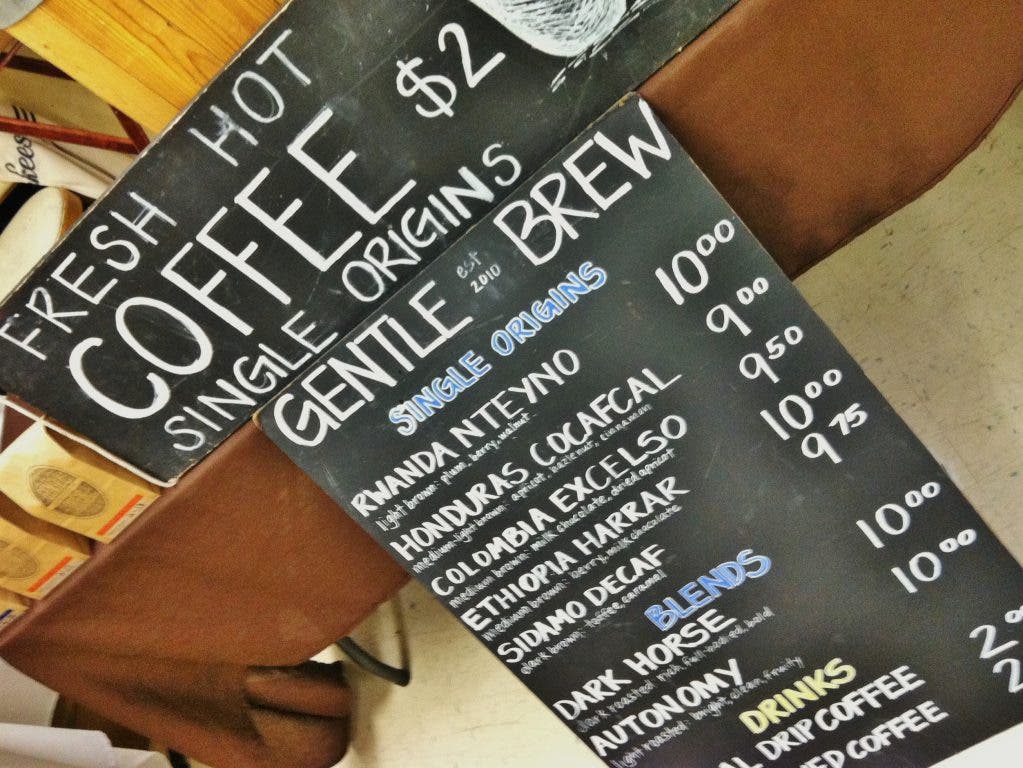 FRESH HOT
COFFEE $2
SINGLE ORIGINS
GENTLE est 2010 BREW
SINGLE ORIGINS
RWANDA NTEYNO 10.00
light brown: plum, berry, walnut
HONDURAS COCAFCAL 9.00
medium-light brown: apricot, hazelnut, cinnamon
COLOMBIA EXCELSO 9.50
medium brown: milk chocolate, dried apricot
ETHIOPIA HARRAR 10.00
medium brown: berry, milk chocolate
SIDAMO DECAF 9.75
dark brown: toffee, caramel
BLENDS
DARK HORSE 10.00
dark roasted: rich, full-bodied, bold
AUTONOMY 10.00
light roasted: bright, clean, fruity
DRINKS
DRIP COFFEE 2
COFFEE 2